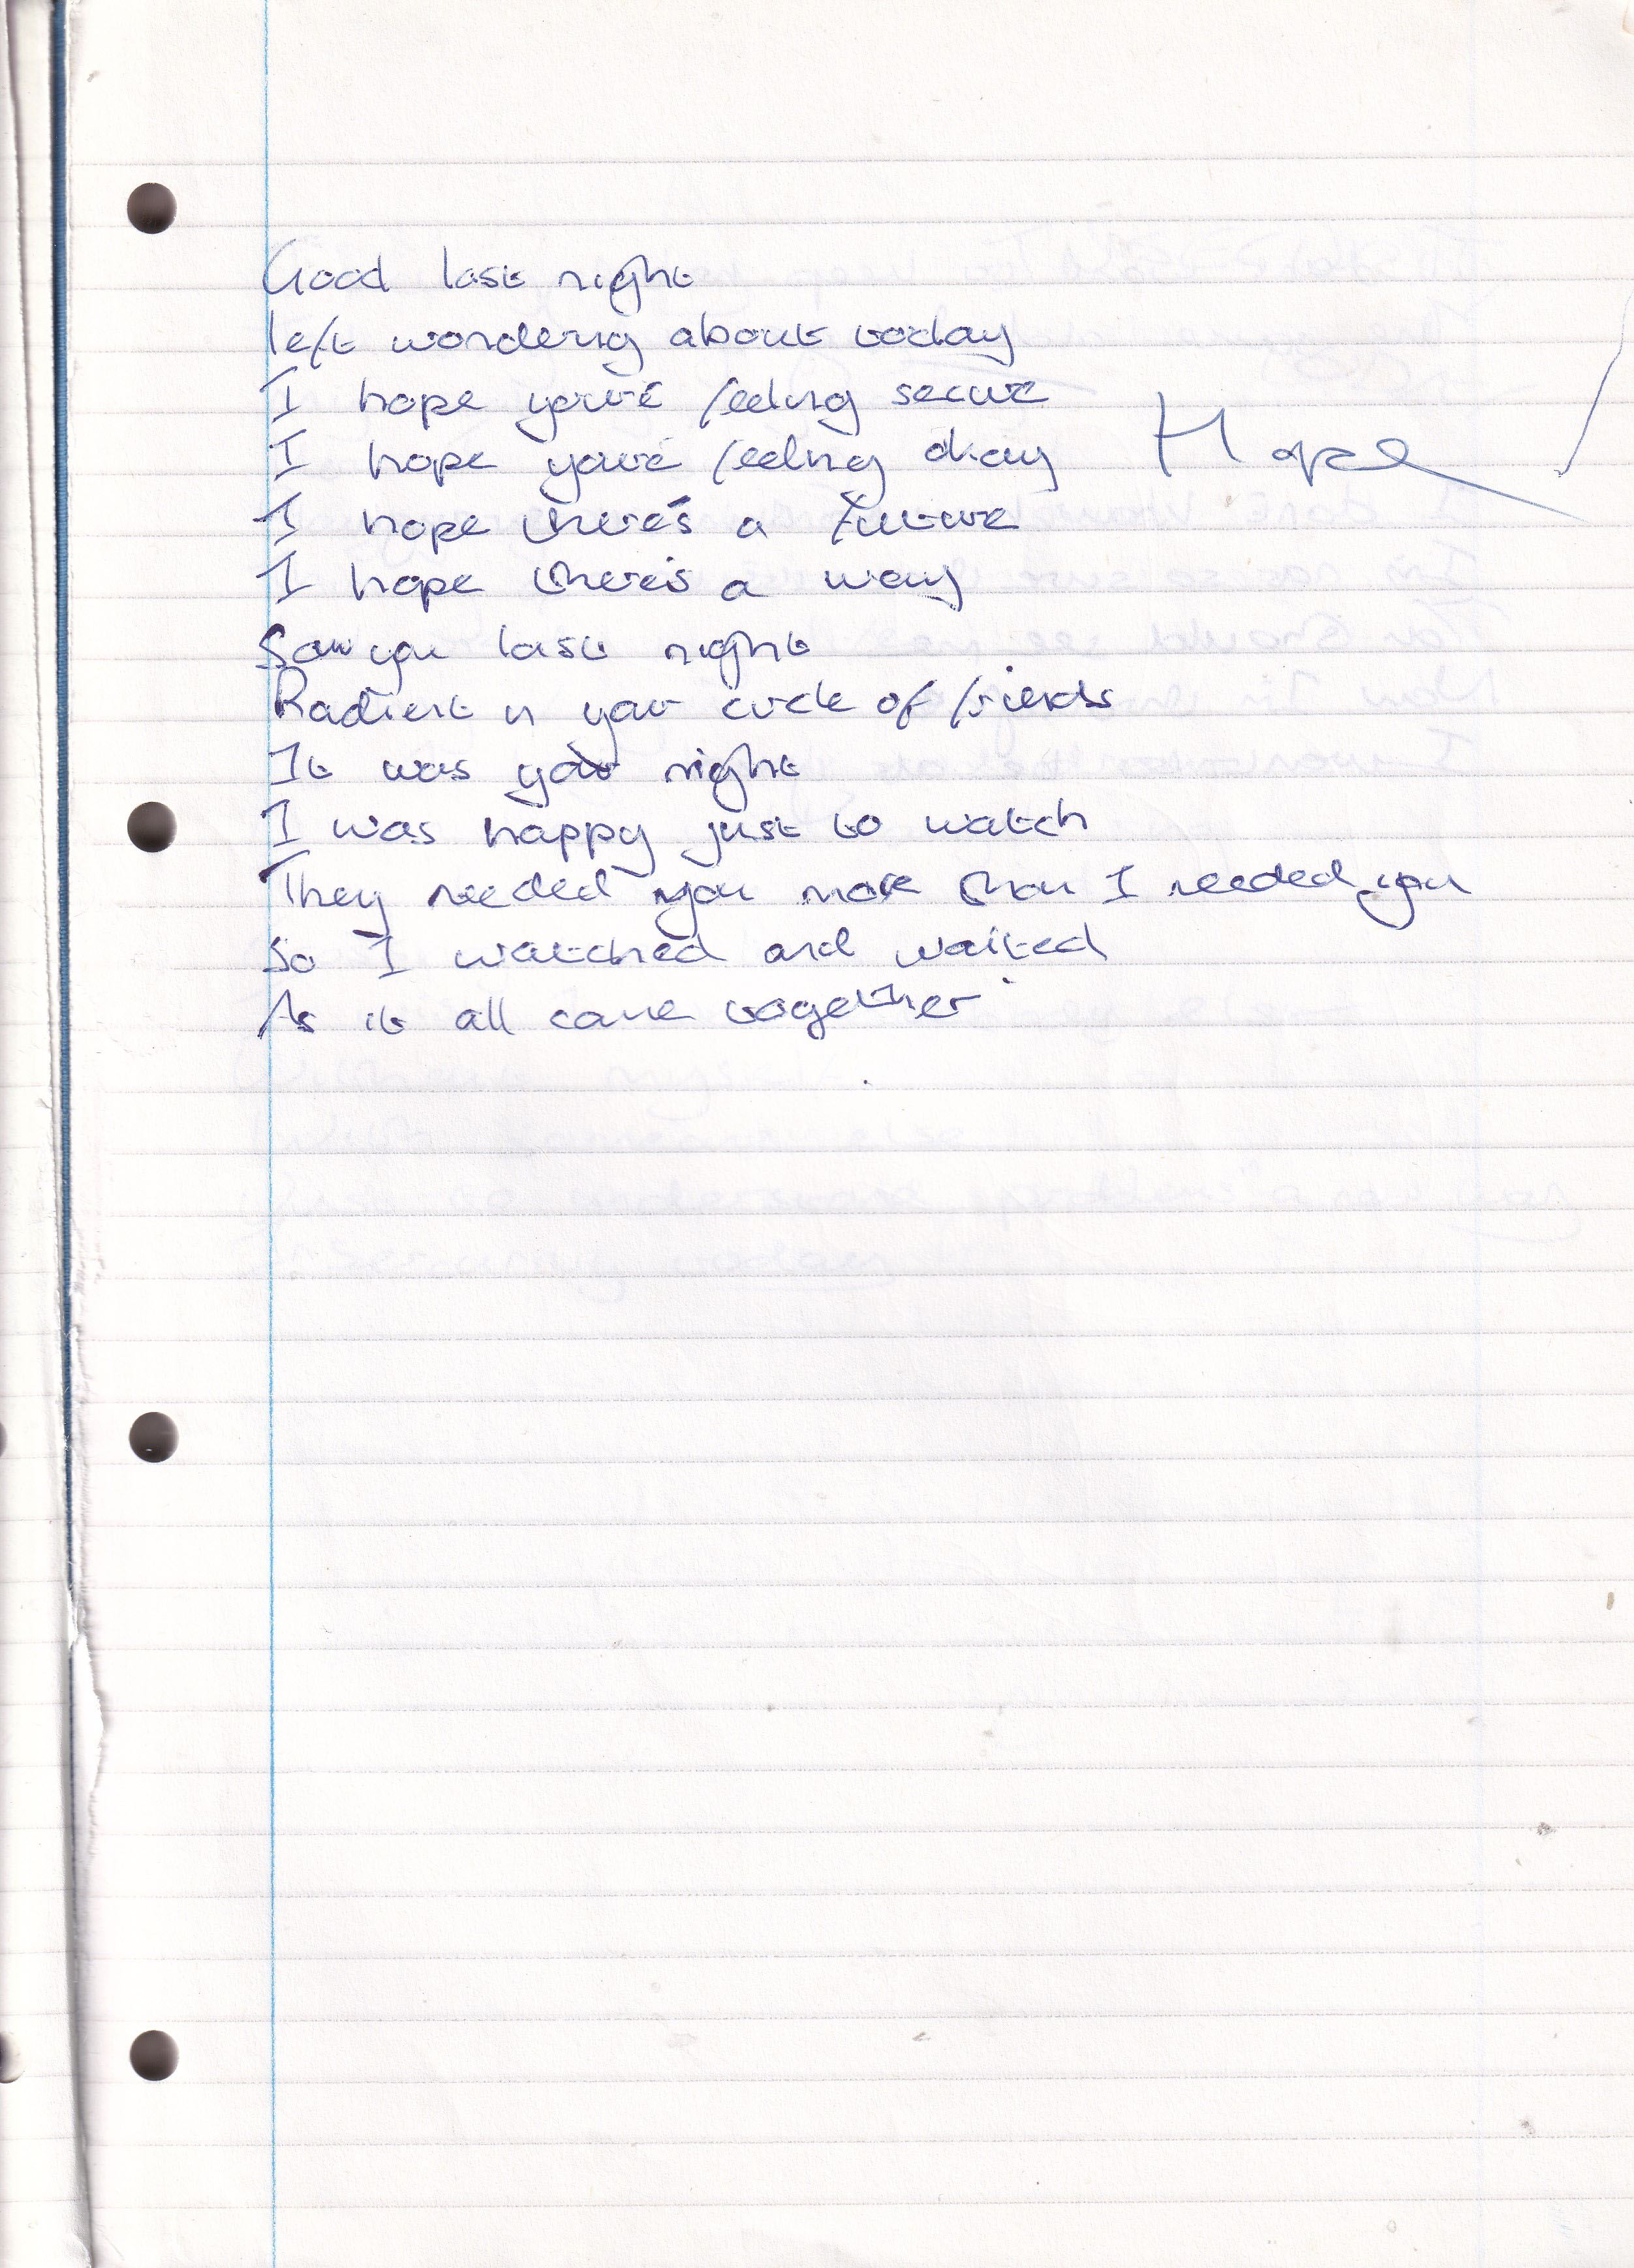 Good last night
left wondering about today
I hope you're feeling secure
I hope you're feeling okay
Hope
I hope there's a future
I hope there's a way
Saw you last night
Radient in your circle of friends
It was your night
I was happy just to watch
They needed you more than I needed you
So I watched and waited
As it all came together